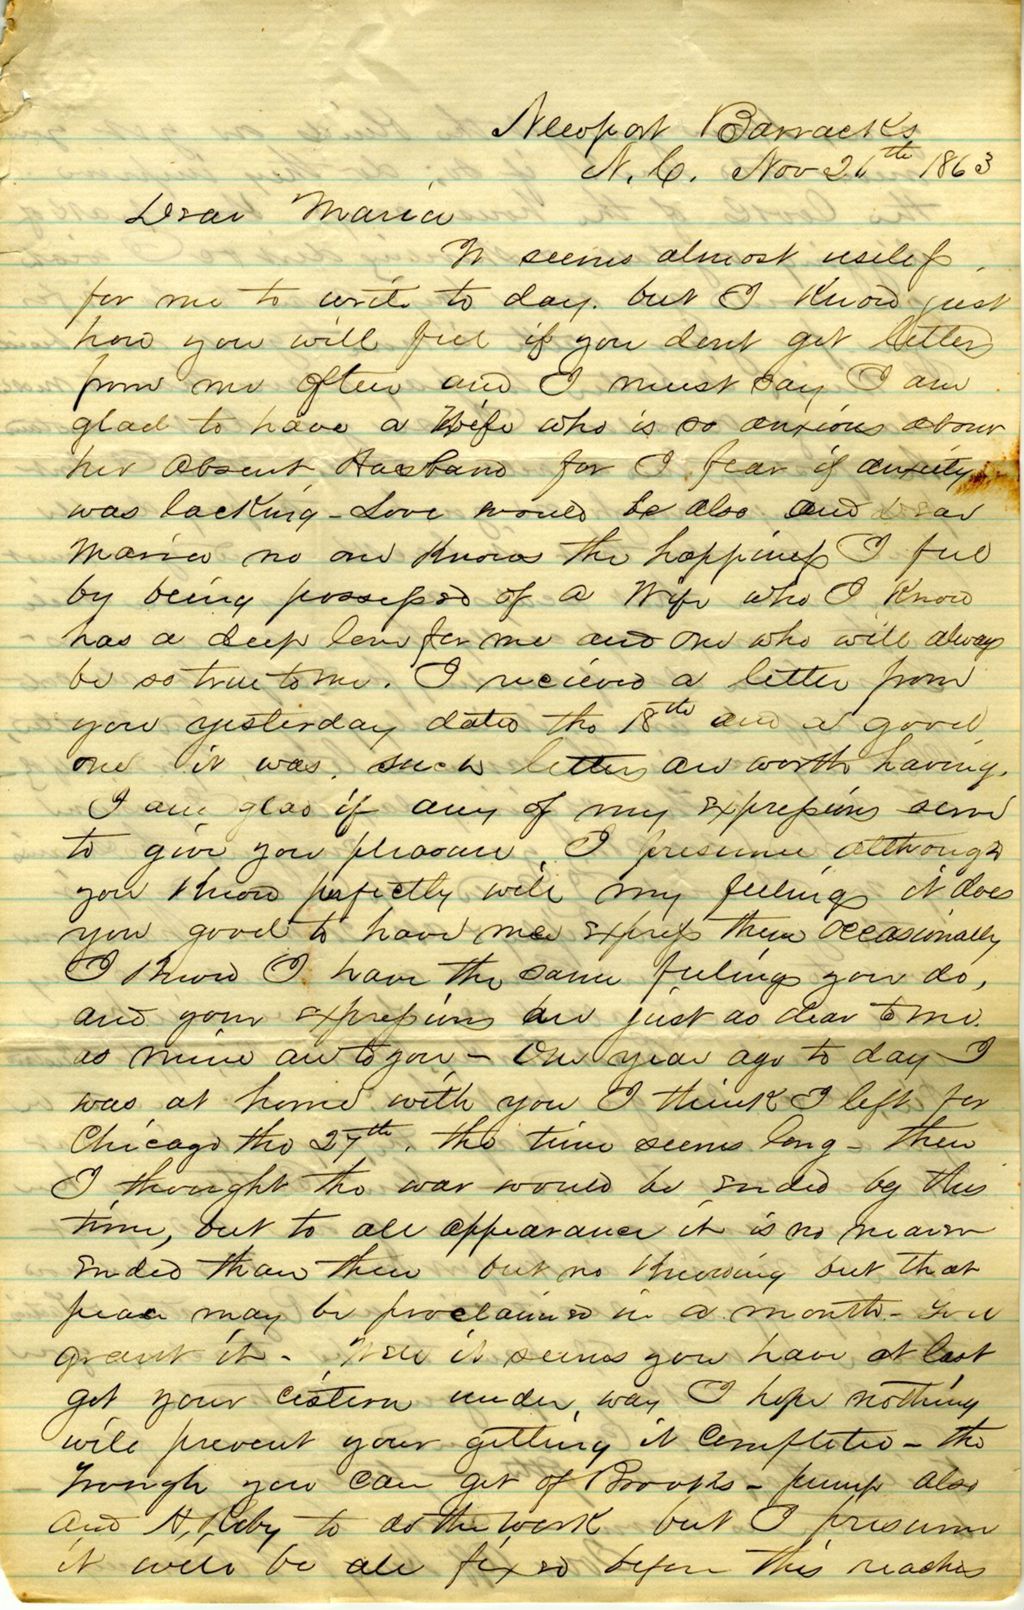 Newport Barracks
N. C. Nov 26th 1863
Dear Maria
It seems almost useless
for me to write to day. but I know just
how you will feel if you dont get letters
from me often and I must say I am
glad to have a Wife who is so anxious about
her absent Husband for I fear if anxiety
was lacking - Love would be also and dear
Maria no one knows the happiness I feel
by being possessed of a Wife who I know
has a deep love for me and one who will always
be so true to me. I recieved a letter from
you yesterday dated the 18th and a good
one it was. such letters are worth having.
I am glad if any of my expressions serve
to give you pleasure, I presume although
you know perfectly well my feelings it does
you good to have me express them occasionally
I know I have the same feelings you do,
and your expressions are just as dear to me
as mine are to you - One year ago to day I
was at home with you I think I left for
Chicago the 27th. the time seems long - then
I thought the war would be ended by this
time, but to all appearance it is no nearer
ended than then but no knowing but that
peace may be proclaimed in a month - God
grant it - Well it seems you have at last
got your cistern under way I hope nothing
will prevent your getting it completed - the
trough you can get of Brooks - pump also
and H, to do the work but I presume
it will be all fixed before this reaches